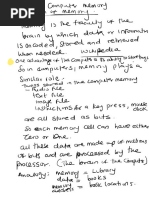 Computer memory
or memory
memory is the faculty of the
brain by which data or information
is encoded, stored and retrieved
when needed. wikipedia
One advantage of the Computer is its ability to store things
So in computers; memory plays a
Similar role.
Things stored in the computer memory
Audio file
text file
image file
Instructions for a key press, mouse
click
are all stored as bits.
So each memory cell can have either
Zero or one.
All these data are made up of millions
of bits and are processed by the
processor. (The brain of the Computer)
Analogy: memory = Library
data = books
memory = book locations.